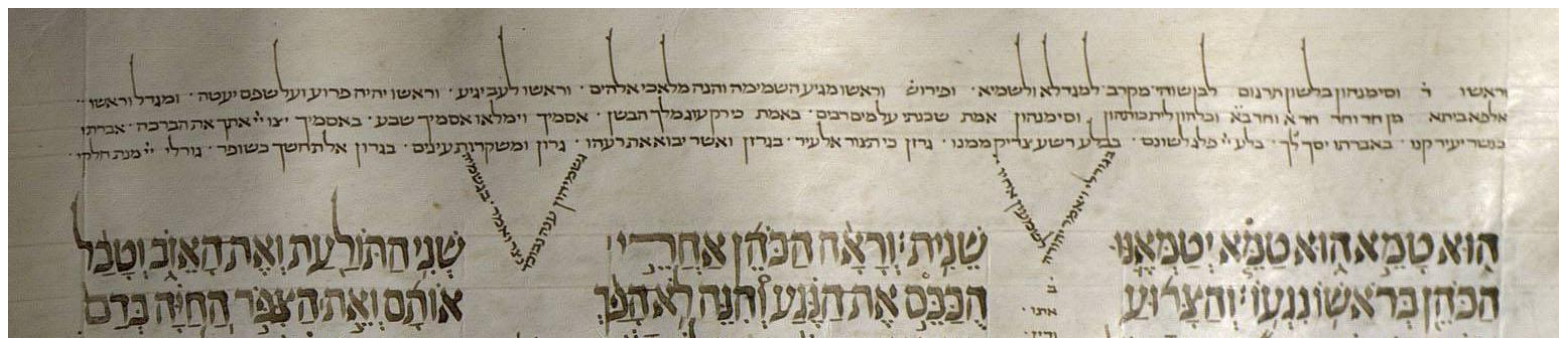 וראשו ד̇ וסימנהון בלשון תרגום לבן שוחי מקרב למגדלא ולשמיא · ופירוש וראשו מגיע השמימה והנה מלאכי אלהים · וראשו לעב יגיע · וראשו יהיה פרוע ועל שפם יעטה · ומגדל וראשו
אלפא ביתא מן חד וחד חד א וחד בא וכלהון לית כותהון וסימנהון אמת שכנתי על מים רבים · באמת כי רק עוג מלך הבשן · אסמיך וימלאו אסמיך שבע · באסמיך יצו יי אתך את הברכה · אברתו
כנשר יעיר קנו · באברתו יסך לך · בלע יי פלג לשונם · בבלע רשע צדיק ממנו · גרזן כי תצור אל עיר · בגרזן ואשר יבוא את רעהו · גרון ומשקרות עינים · בגרון אל תחשך כשופר · גורלי יי מנת חלקי ·
בגורלי ויאמר יהודה
לשמעון אחיו ·
גשמיהון ענה נבוכד
נצר ואמר · בגשמי
הוּא טָמֵא הוּא טַמֵּא יְטַמְּאֶנּוּ
הַכֹּהֵן בְּרֹאשׁוֹ נִגְעוֹ׃ וְהַצָּרוּעַ
שֵׁנִית׃ וְרָאָה הַכֹּהֵן אַחֲרֵי
הֻכַּבֵּס אֶת הַנֶּגַע וְהִנֵּה לֹא הָפַךְ
שְׁנִי הַתּוֹלַעַת וְאֶת הָאֵזֹב וְטָבַל
אוֹתָם וְאֵת הַצִּפֹּר הַחַיָּה בְּדַם
אתו ·
ודין ·